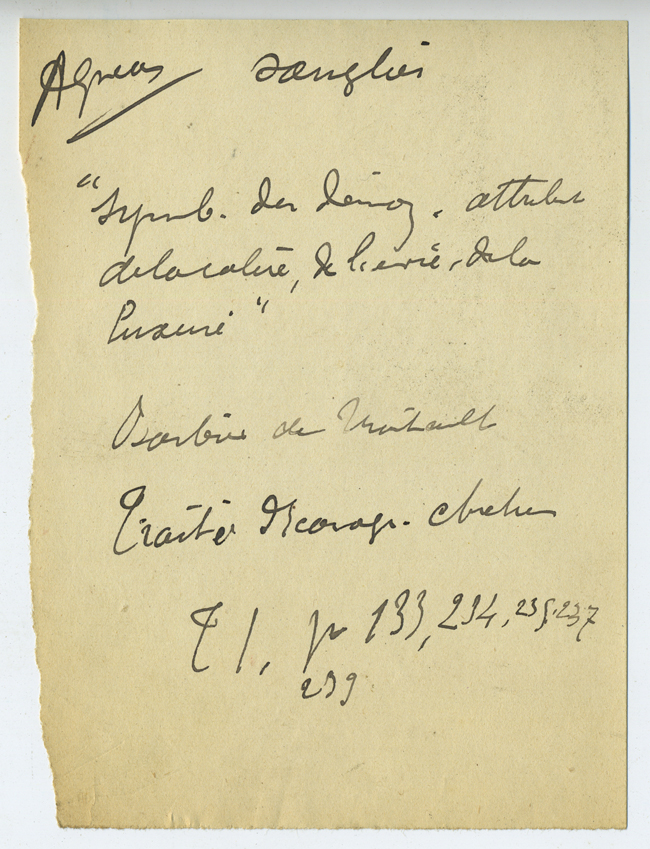 Agneau sanglier
"symb. des démons. attribut
de la colère, de l'envie, de la
luxure"
Barbier de Montault
Traité d'Iconogr. chrétien
T 1, p 133, 234, 235.237
239